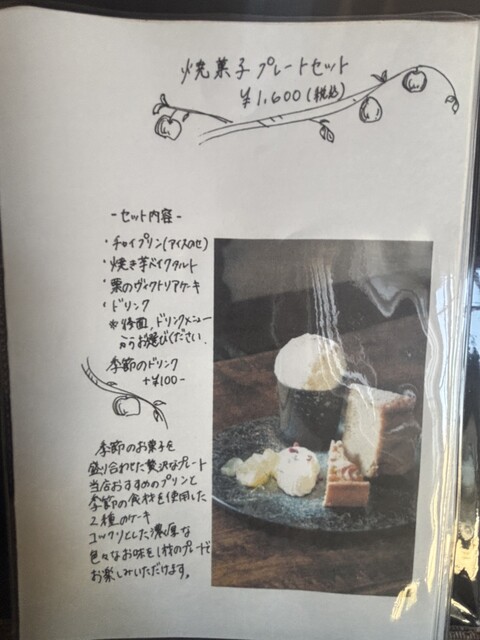 焼菓子プレートセット
¥1,600(税込)
-セット内容-
・チョイプリン(アイスのせ)
・焼き芋ベイクタルト
・栗のヴィクトリアケーキ
・ドリンク
※裏面、ドリンクメニュー
からお選びください。
季節のドリンク
+¥100-
季節のお菓子を
盛り合わせた贅沢なプレート
当店おすすめのプリンと
季節の食材を使用した
2種のケーキ
コックリとした濃厚な
色々なお味を1枚のプレートで
お楽しみいただけます。